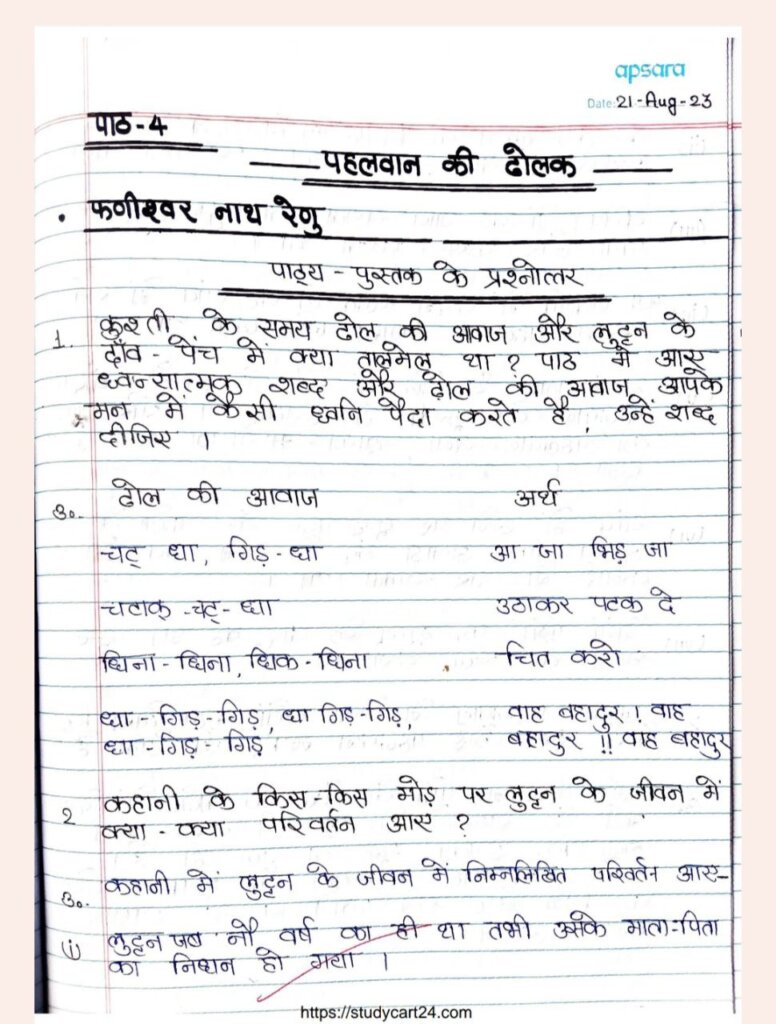 apsara
Date: 21-Aug-23
पाठ-4
पहलवान की ढोलक
• फणीश्वर नाथ रेणु
पाठ्य-पुस्तक के प्रश्नोत्तर
1. कुश्ती के समय ढोल की आवाज और लुट्टन के
दाँव-पेंच में क्या तालमेल था? पाठ में आए
ध्वन्यात्मक शब्द और ढोल की आवाज आपके
मन में कैसी ध्वनि पैदा करते हैं, उन्हें शब्द
दीजिए ।
उ०. ढोल की आवाज अर्थ
चट् धा, गिड़-धा आ जा भिड़ जा
चटाक्-चट्-धा उठाकर पटक दे
धिना-धिना, धिक-धिना चित करो
धा-गिड़-गिड़, धा गिड़-गिड़, वाह बहादुर ! वाह
धा-गिड़-गिड़ बहादुर !! वाह बहादुर
2 कहानी के किस-किस मोड़ पर लुट्टन के जीवन में
क्या-क्या परिवर्तन आए ?
उ०. कहानी में लुट्टन के जीवन में निम्नलिखित परिवर्तन आए-
(i) लुट्टन जब नौ वर्ष का ही था तभी उसके माता-पिता
का निधन हो गया ।
https://studycart24.com